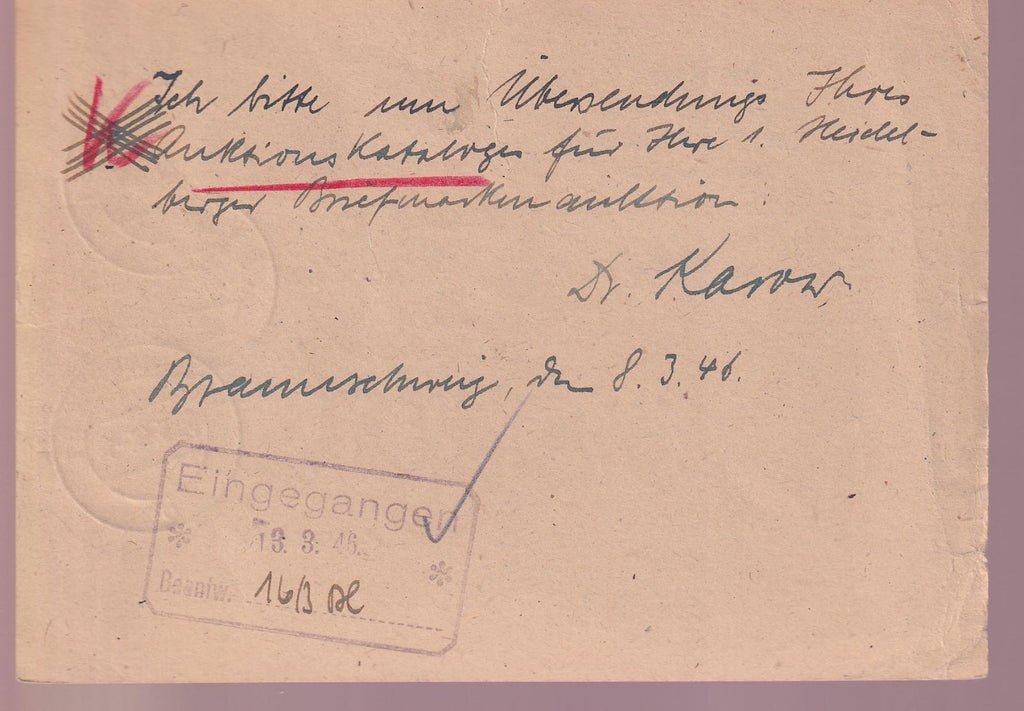 K
Ich bitte um Übersendung Ihres
Auktionskataloges für Ihre 1. Heidel-
berger Briefmarkenauktion.
Dr. Karow
Braunschweig, den 8.3.46.
Eingegangen
13. 3. 46.
Beantw. 16/3